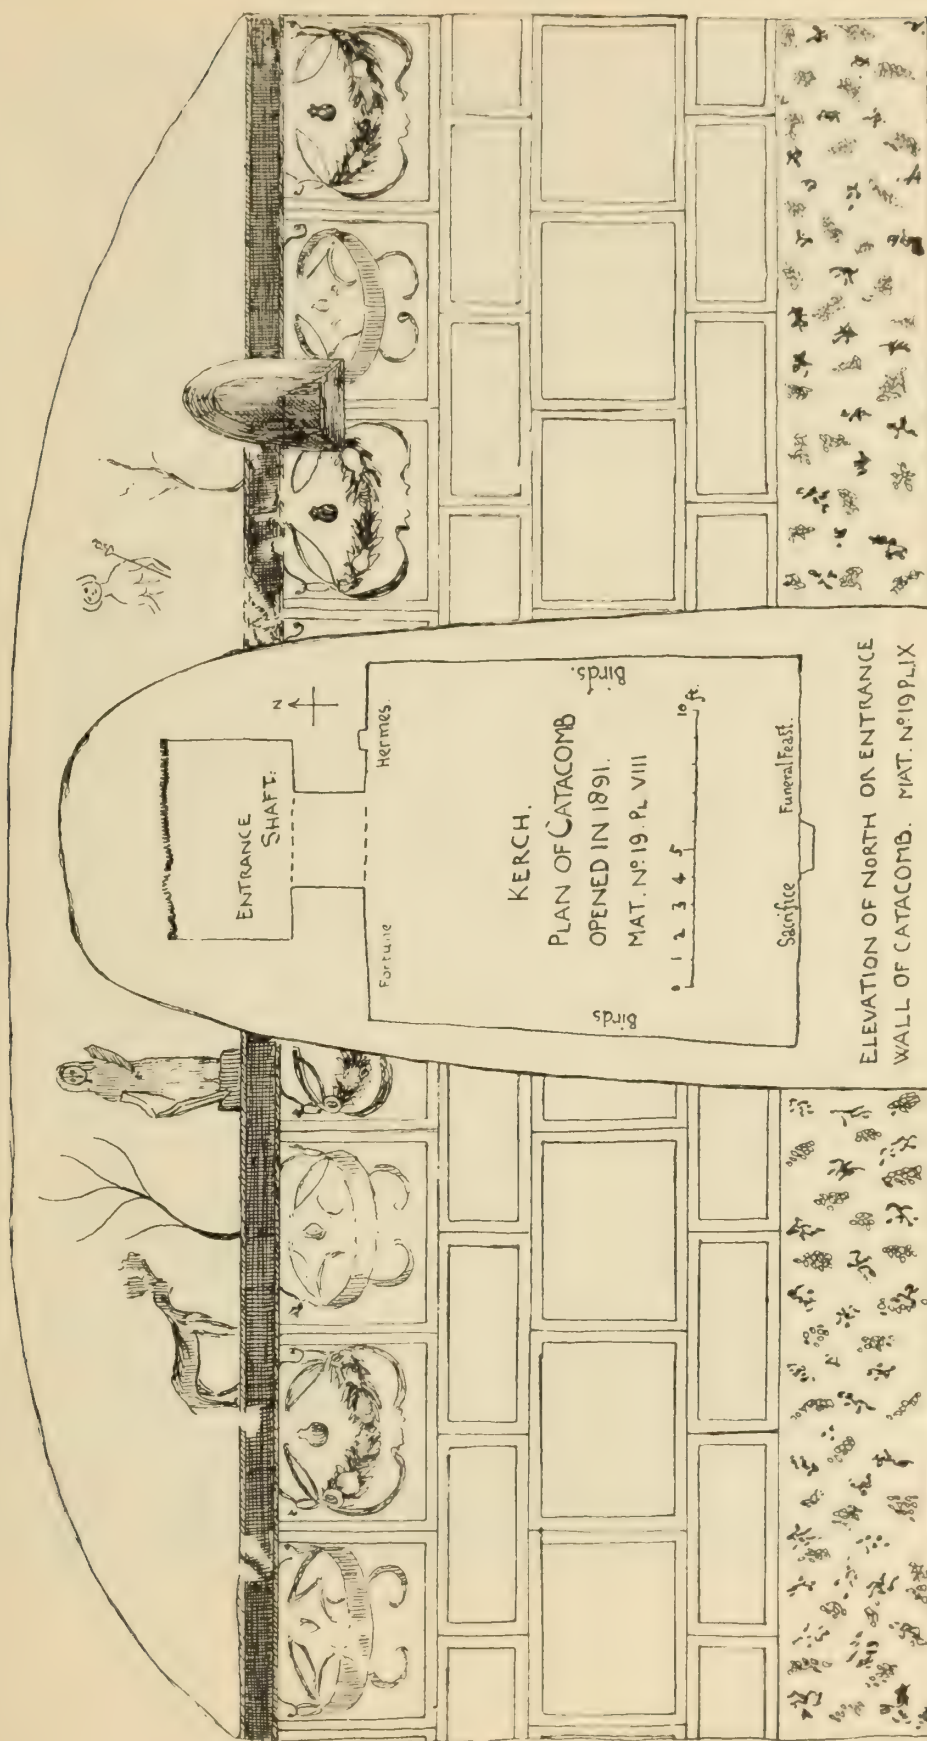 N
ENTRANCE
SHAFT.
Fortune
Hermes.
KERCH.
PLAN OF CATACOMB
OPENED IN 1891.
MAT. Nº. 19. PL VIII
0 1 2 3 4 5 10 ft.
Birds
Birds.
Sacrifice
Funeral Feast.
ELEVATION OF NORTH OR ENTRANCE
WALL OF CATACOMB. MAT. Nº 19 PL IX